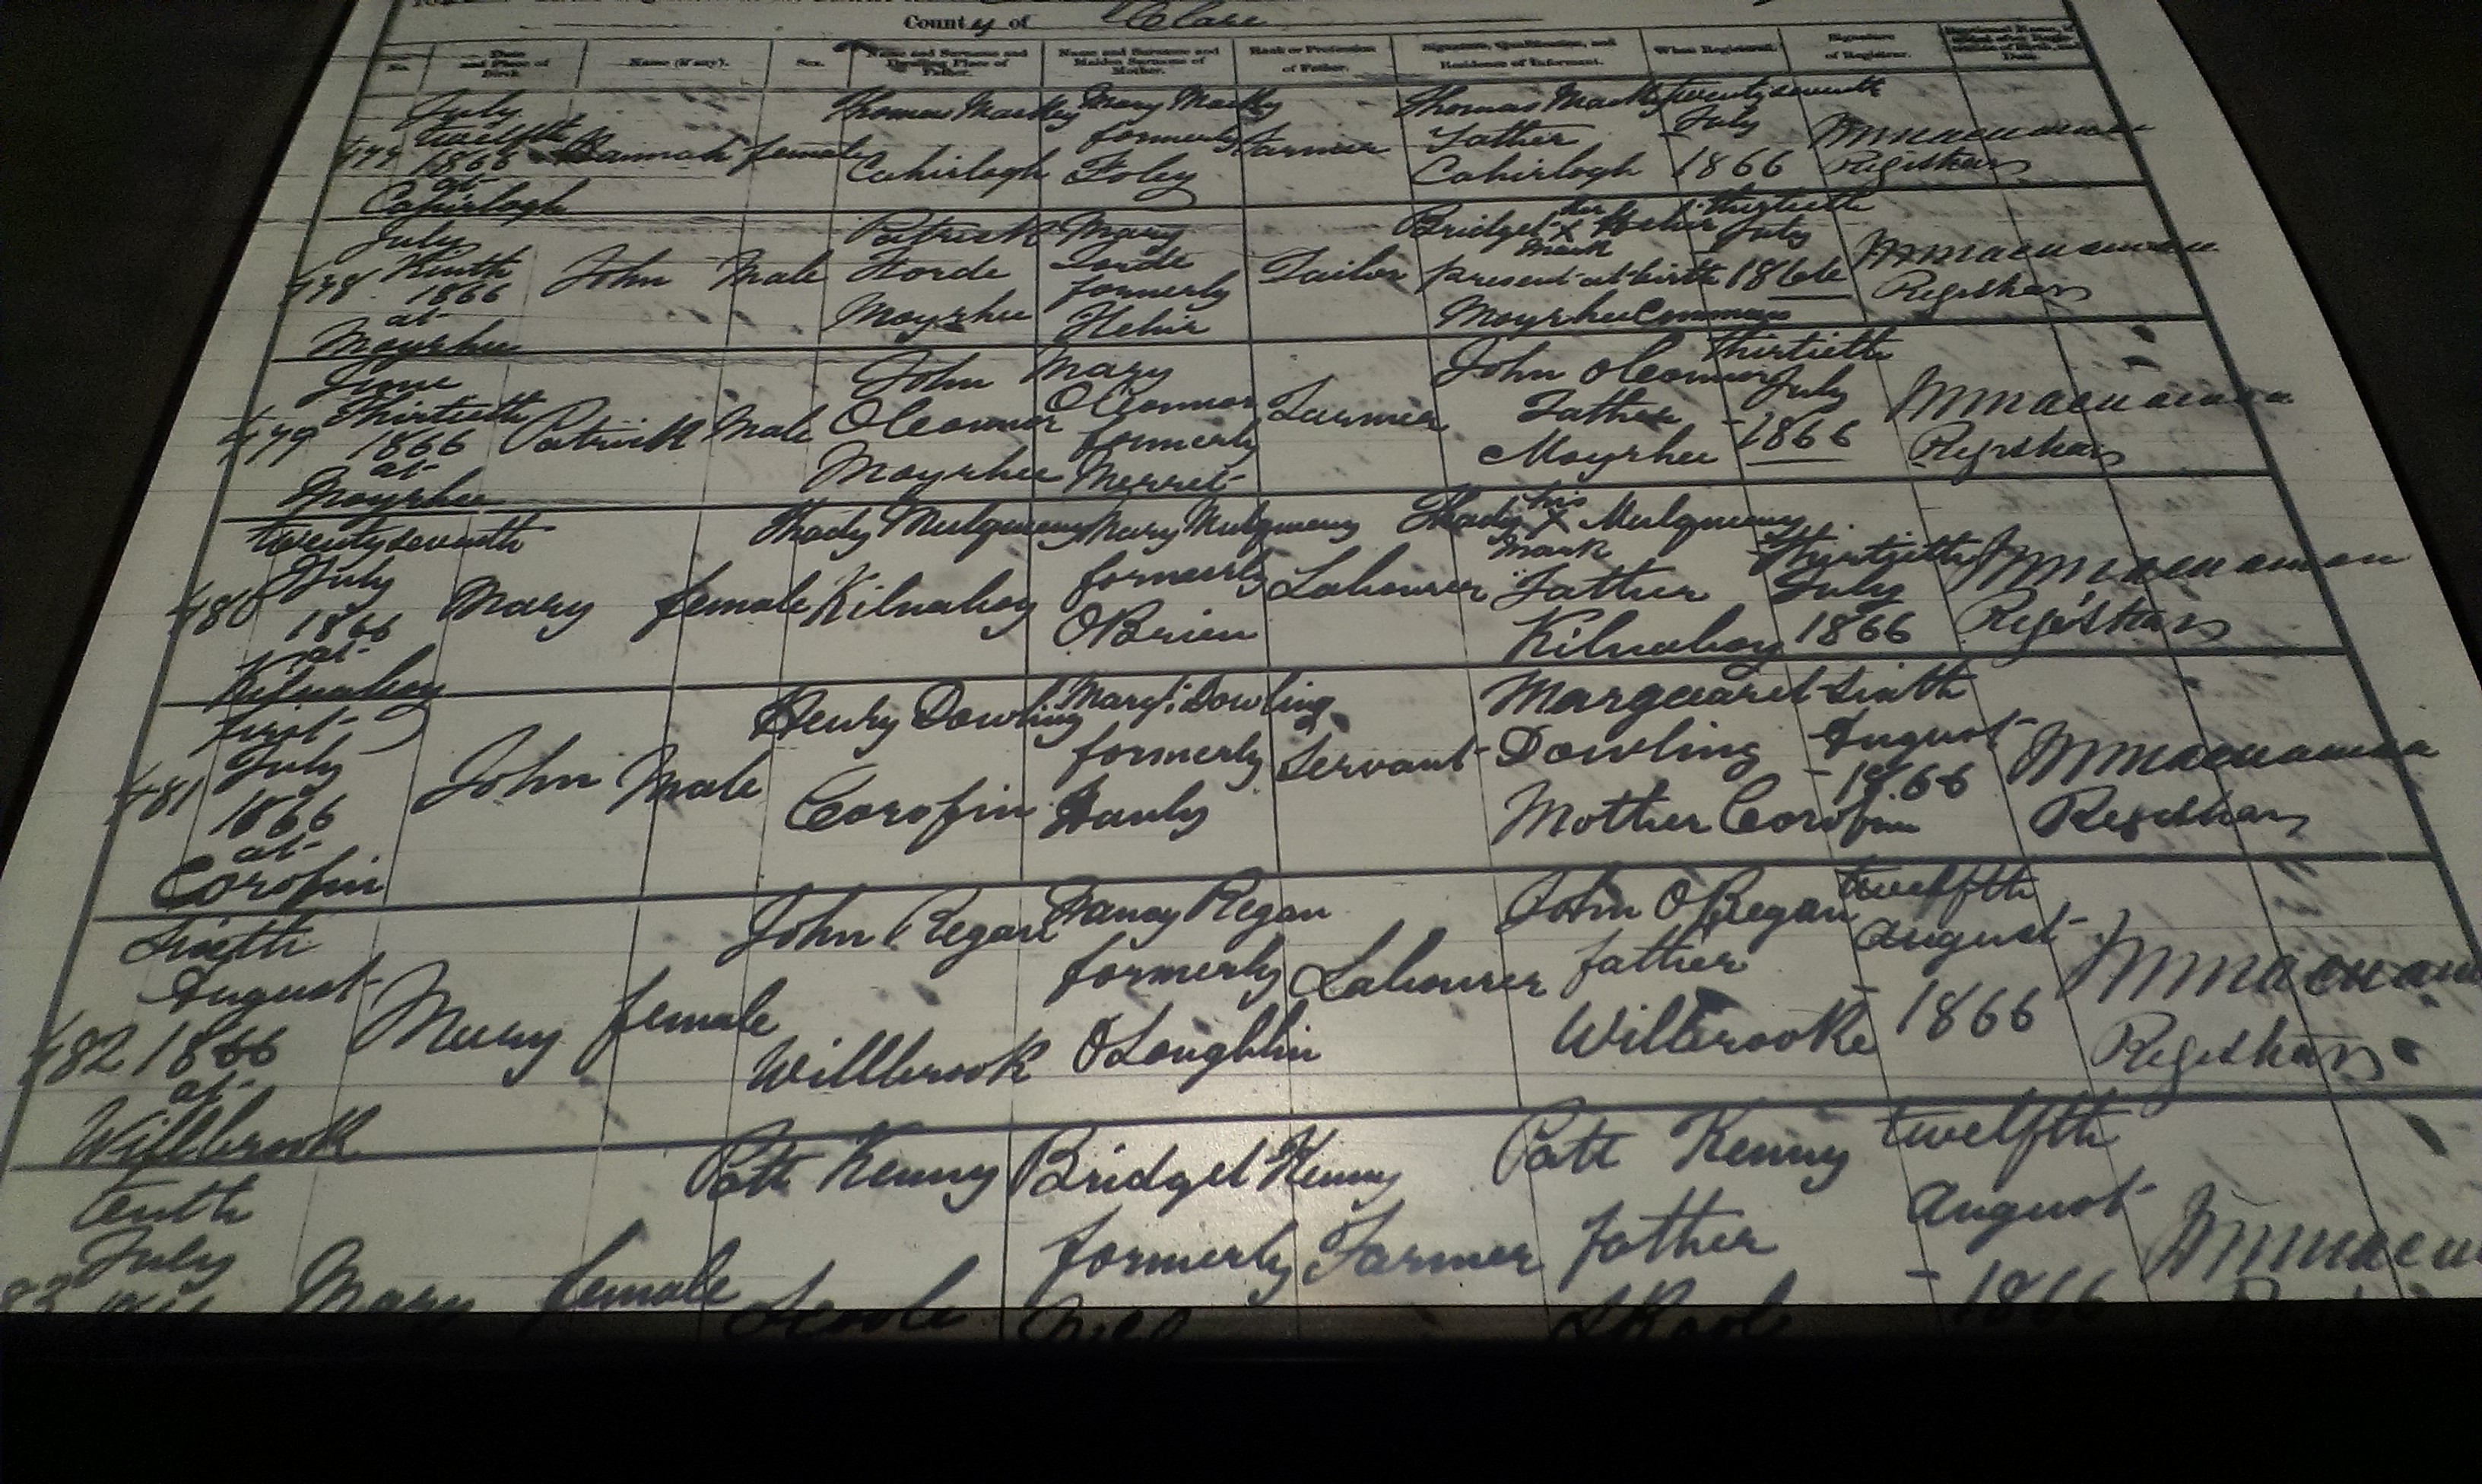 County of Clare
No.
Date and Place of Birth.
Name (if any).
Sex.
Name and Surname and Dwelling Place of Father.
Name and Surname and Maiden Surname of Mother.
Rank or Profession of Father.
Signature, Qualification, and Residence of Informant.
When Registered.
Signature of Registrar.
477
July
twelfth
1866
at
Cahirlogh
Hannah
female
Thomas Mackey
Cahirlogh
Mary Mackey
formerly
Foley
Farmer
Thomas Mackey
Father
Cahirlogh
twentyseventh
July
1866
Registrar
478
July
Ninth
1866
at
Moyrhee
John
Male
Patrick
Forde
Moyrhee
Mary
Forde
formerly
Hehir
Tailor
Bridget her X mark Hehir
present at birth
Moyrhee Commons
thirtieth
July
1866
Registrar
479
June
Thirtieth
1866
at
Moyrhee
Patrick
Male
John
OConnor
Moyrhee
Mary
OConnor
formerly
Merret
Farmer
John OConnor
Father
Moyrhee
Thirtieth
July
1866
Registrar
480
twentyseventh
July
1866
at
Kilnaboy
Mary
female
Thady Mulqueeny
Kilnaboy
Mary Mulqueeny
formerly
OBrien
Labourer
Thady his X mark Mulqueeny
Father
Kilnaboy
Thirtieth
July
1866
Registrar
481
first
July
1866
at
Corofin
John
Male
Henry Dowling
Corofin
Margt. Dowling
formerly
Hanly
Servant
Margaret
Dowling
Mother Corofin
Sixth
August
1866
Registrar
482
Sixth
August
1866
at
Willbrook
Mary
female
John Regan
Willbrook
Nancy Regan
formerly
OLoughlin
Labourer
John O Regan
father
Willbrooke
twelfth
August
1866
Registrar
83
tenth
July
Mary
female
Patt Kenny
Bridget Kenny
formerly
Farmer
Patt Kenny
father
twelfth
August
1866